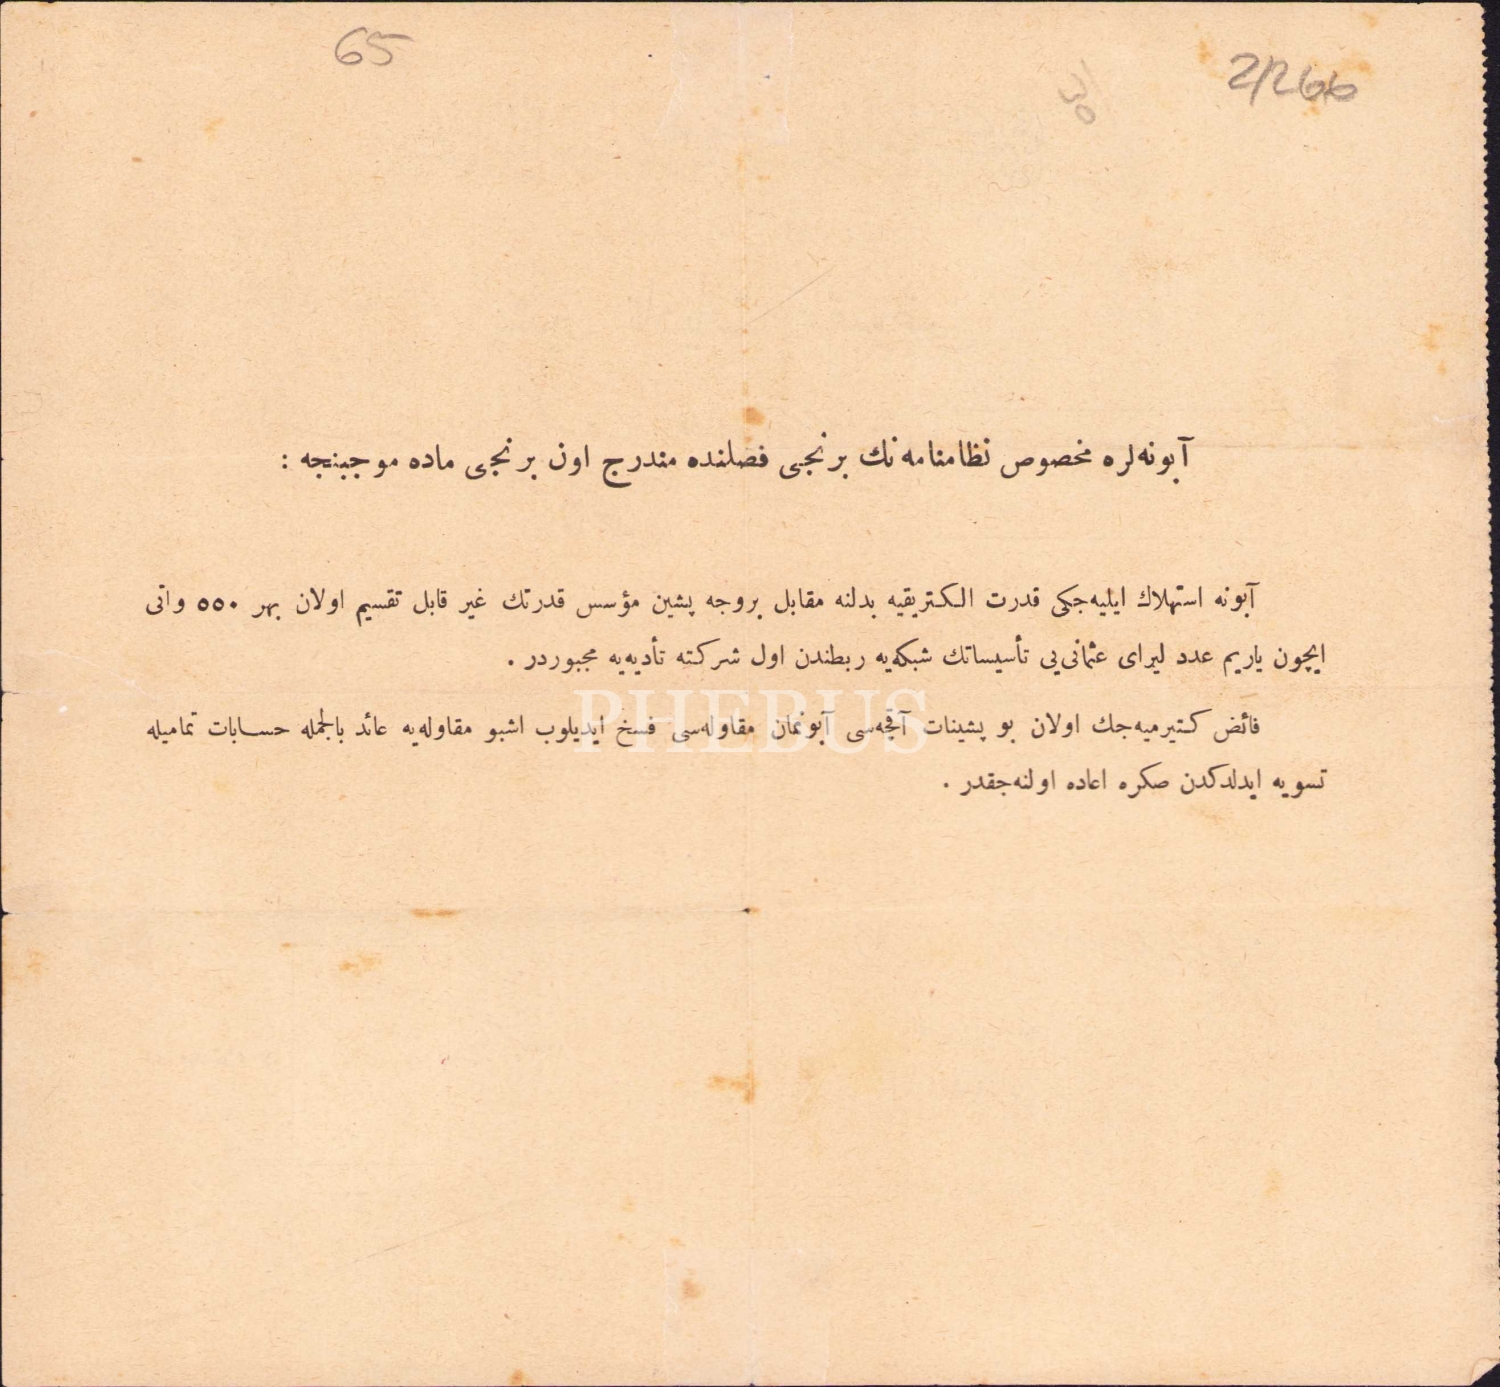 65
2/266
آبونه‌لره مخصوص نظامنامه‌نك برنجی فصلنده مندرج اون برنجی ماده موجبنجه :
آبونه استهلاك ایلیه‌جكی قدرت الكتریقیه بدلنه مقابل بروجه پشین مؤسس قدرتك غیر قابل تقسیم اولان بهر ٥٥٠ واتی
ایچون یاریم عدد لیرای عثمانی‌یی تأسیساتك شبكه‌یه ربطندن اول شركته تأدیه‌یه مجبوردر .
فائض كتیرمیه‌جك اولان بو پشینات آقچه‌سی آبونمان مقاوله‌سی فسخ ایدیلوب اشبو مقاوله‌یه عائد بالجمله حسابات تمامیله
تسویه ایدلدكدن صكره اعاده اولنه‌جقدر .
PHEBUS